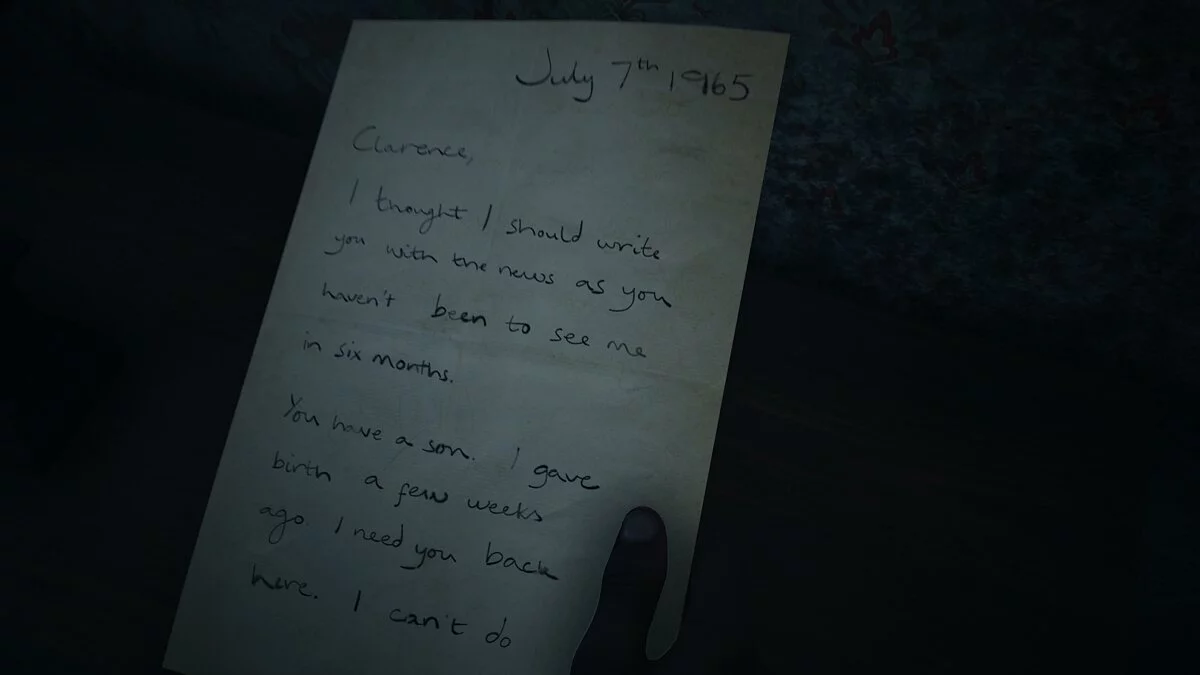 July 7th 1965
Clarence,
I thought I should write
you with the news as you
haven't been to see me
in six months.
You have a son. I gave
birth a few weeks
ago. I need you back
here. I can't do